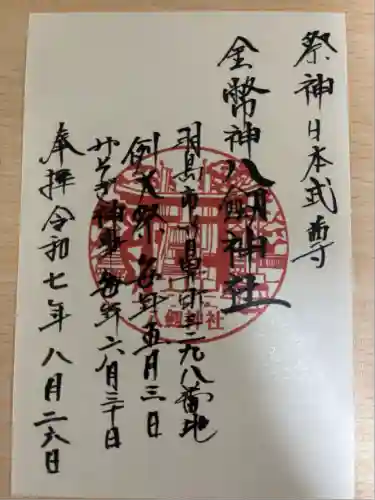 祭神日本武尊
金幣神八剱神社
羽島市
例大祭 毎年五月三日
みそぎ神事 毎年六月三十日
奉拝 令和七年八月二六日
八剱神社